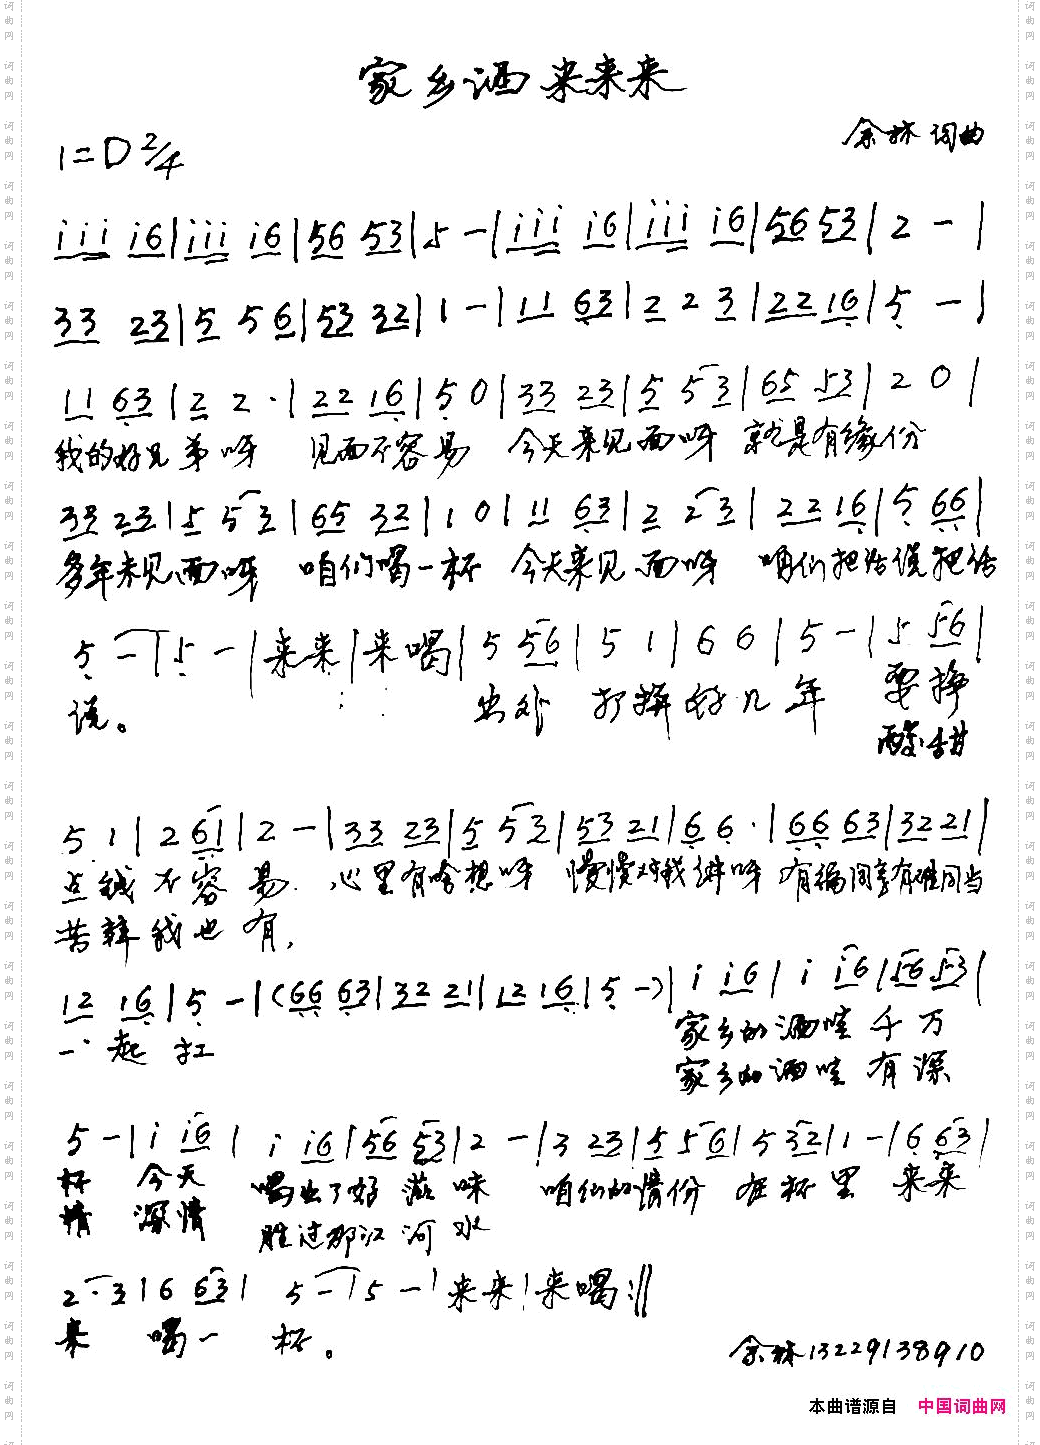 家乡酒来来来
1=D 2/4
余林 词曲
i i i i 6 | i i i i 6 | 5 6 5 3 | 5 - | i i i i 6 | i i i i 6 | 5 6 5 3 | 2 - |
3 3 2 3 | 5 5 6 | 5 3 3 2 | 1 - | 1 1 6 3 | 2 2 3 | 2 2 1 6 | 5 - |
1 1 6 3 | 2 2 · | 2 2 1 6 | 5 0 | 3 3 2 3 | 5 5 3 | 6 5 5 3 | 2 0 |
我的好兄弟呀 见面不容易 今天来见面呀 就是有缘份
3 3 2 3 | 5 5 3 | 6 5 3 2 | 1 0 | 1 1 6 3 | 2 2 3 | 2 2 1 6 | 5 6 6 |
多年未见面呀 咱们喝一杯 今天来见面呀 咱们把话说把话
5 - | 5 - | 来来 | 来喝 | 5 5 6 | 5 1 | 6 6 | 5 - | 5 5 6 |
说。 出外 打拼好几年 要挣
酸甜
5 1 | 2 6 1 | 2 - | 3 3 2 3 | 5 5 3 | 5 3 2 1 | 6 6 · | 6 6 6 3 | 3 2 2 1 |
点钱不容易. 心里有啥想呀 慢慢对我讲呀 有福同享有难同当
苦辣我也有,
1 2 1 6 | 5 - | ( 6 6 6 3 | 3 2 2 1 | 1 2 1 6 | 5 - ) | i i 6 | i i 6 | 5 6 5 3 |
一起扛 家乡的酒哇千万
家乡的酒哇有深
5 - | i i 6 | i i 6 | 5 6 5 3 | 2 - | 3 2 3 | 5 5 6 | 5 3 2 | 1 - | 6 6 3 |
杯 今天 喝出了好滋味 咱们的情份在杯里 来来
情 深情 胜过那江河水
2 · 3 | 6 6 3 | 5 - | 5 - | 来来 | 来喝 :||
来 喝一杯。
余林13229138910
本曲谱源自 中国词曲网